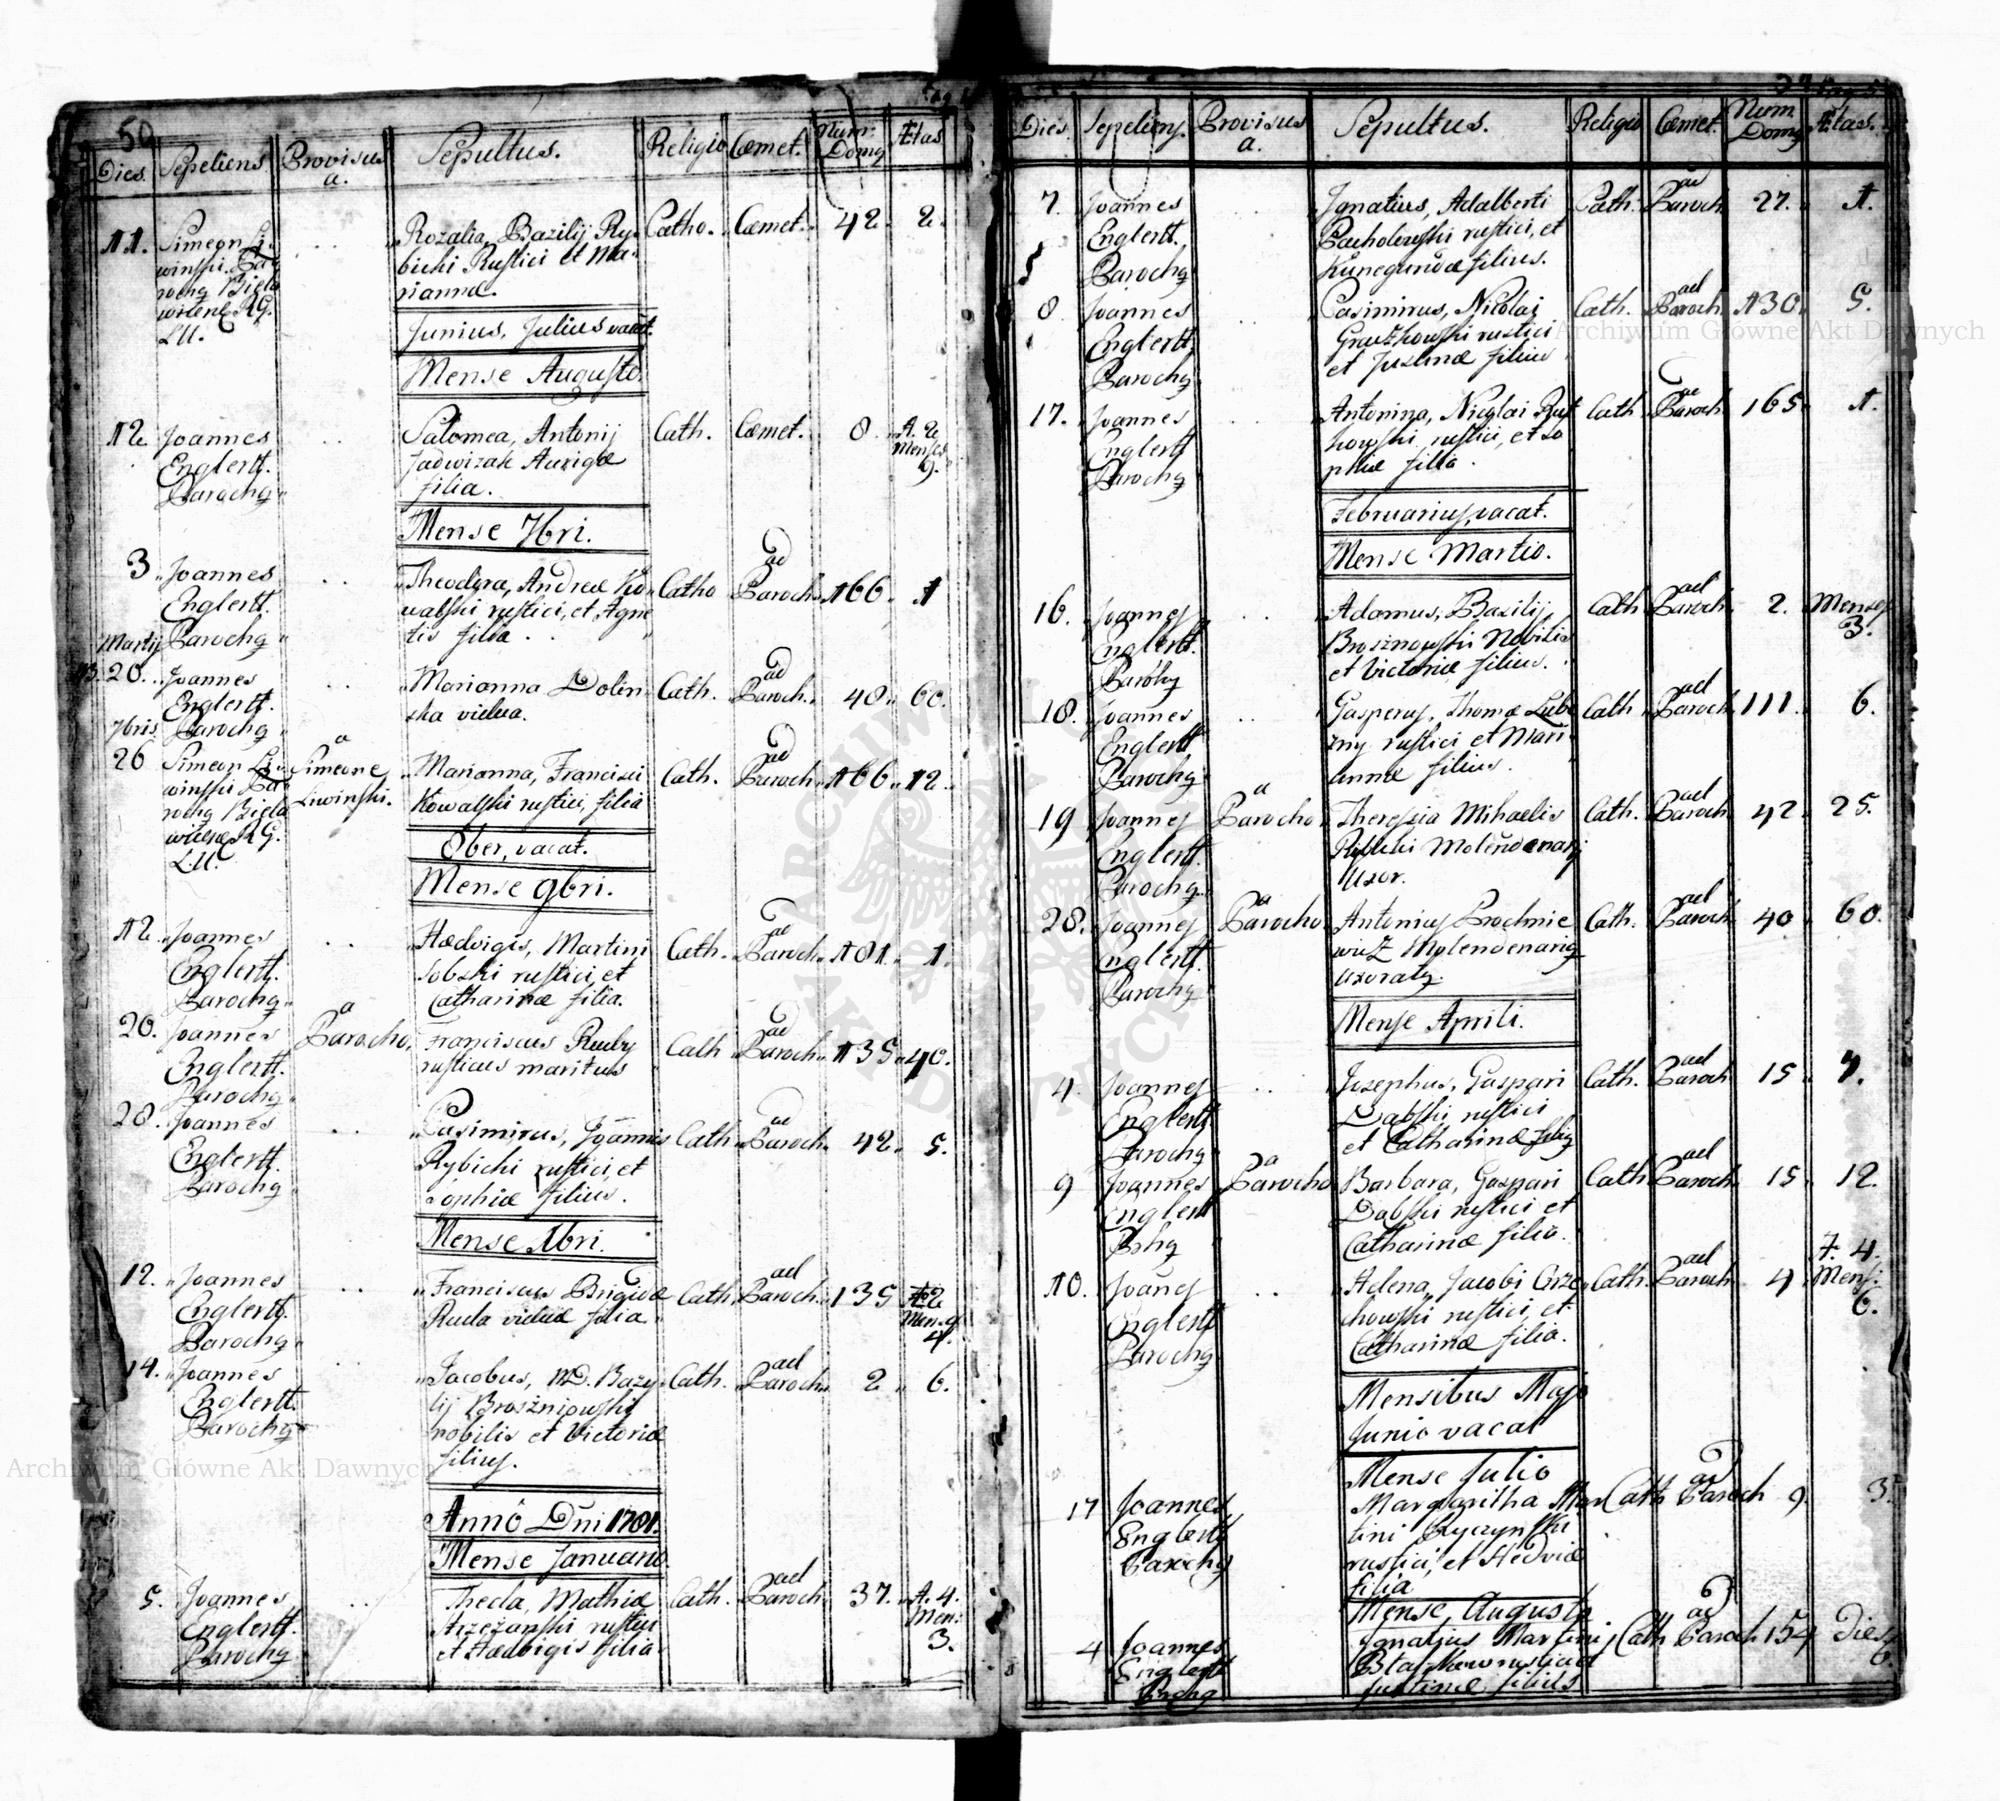 50
Dies.
Sepeliens
Provisus a.
Sepultus.
Religio
Cœmet.
Num: Domq
Ætas
11.
Simeon Li-
winski Pa-
rochq Biela
wicenc RG.
LU.
Rozalia, Bazilij Ry-
bichi Rustici et Ma-
riannæ.
Catho.
Cœmet.
42.
2.
Junius, Julius vacat.
Mense Augusto.
12
Joannes
Englertt.
Parochq
Salomea, Antonij
Jadwizak Aurigæ
filia.
Cath.
Cœmet.
8.
A. 2
Menses
9.
Mense 7bri.
3
Joannes
Englertt.
Parochq
Theodora, Andreæ Ko-
walski rustici, et Agne
tis filia.
Catho
ad
Paroch.
166
1
Martij
NB. 20.
Joannes
Englertt.
Parochq
Marianna Dolin
ska vidua.
Cath.
ad
Paroch.
48.
60.
7bris
26
Simeon Li-
winski Pa-
rochq Biela
wicenc RG.
LU.
a
Simeone
Liwinski.
Marianna, Francisci
Kowalski rustici, filia
Cath.
ad
Paroch.
166.
12.
8ber, vacat.
Mense 9bri.
12.
Joannes
Englertt.
Parochq
Hædvigis, Martini
Sobski rustici, et
Catharinæ filia.
Cath.
ad
Paroch.
181.
1.
20.
Joannes
Englertt.
Parochq
a
Parocho,
Franciscus Rudy
rusticus maritus
Cath
ad
Paroch.
135.
40.
28.
Joannes
Englertt.
Parochq
Casimirus, Joannis
Rybichi rustici, et
Sophiæ filius.
Cath
ad
Paroch.
42.
5.
Mense Xbri.
12.
Joannes
Englertt.
Parochq
Franciscus Brigidæ
Ruda viduæ filia.
Cath.
ad
Paroch.
135
A 2
Men. 9
4.
14.
Joannes
Englertt.
Parochq
Jacobus, MD. Bazy-
lij Brosznio̱wski
nobilis et Victoriæ
filius.
Cath.
ad
Paroch.
2
6.
Anno Dni 1781.
Mense Januario.
5.
Joannes
Englertt.
Parochq
Thecla, Mathiæ
Arzeżanski rustici
et Hædvigis filia
Cath.
ad
Paroch.
37.
A. 4.
Men:
3.
Dies.
Sepeliens.
Provisus a.
Sepultus.
Religio
Cœmet.
Num Domq
Ætas.
7.
Joannes
Englertt.
Parochq
Ignatius, Adalberti
Pacholewski rustici, et
Kunegundæ filius.
Cath.
ad
Paroch.
27.
1.
8
Joannes
Englertt.
Parochq
Casimirus, Nicolai
rustici
et Justinæ filius
Cath.
ad
Paroch.
130.
5.
17.
Joannes
Englertt
Parochq
Antonina, Nicolai Rut
kowski rustici, et So
phiæ filia.
Cath
ad
Paroch.
165.
1.
Februarius, vacat.
Mense Martio.
16.
Joannes
Englertt.
Parochq
Adamus, Basilij
Brosznowski Nobilis
et Victoriæ filius.
Cath
ad
Paroch.
2.
Menses
3.
18.
Joannes
Englertt
Parochq
Gasperus, Thomæ Lube
zny rustici et Mari-
annæ filius.
Cath
ad
Paroch.
111.
6.
19
Joannes
Englertt.
Parochq.
a
Parocho.
Theresia Mihaelis
Rybichi Molendenarj
Uxor.
Cath.
ad
Paroch.
42.
25.
28.
Joannes
Englertt.
Parochq
a
Parocho.
Antonius Prochnie
wicz Molendenariq
Uxoratq.
Cath.
ad
Paroch.
40
60.
Mense Aprili.
4.
Joannes
Englertt
Parochq
Josephus, Gaspari
Dabski rustici
et Catharinæ filiq
Cath.
ad
Paroch
15
7.
9
Joannes
Englertt
Prhq
a
Parocho
Barbara, Gaspari
Dabski rustici et
Catharinæ filia.
Cath
ad
Paroch.
15.
12.
10.
Joañes
Englertt
Parochq.
Helena, Jacobi Grze
chowski rustici, et
Catharinæ filia.
Cath.
ad
Paroch.
4
A. 4.
Mens:
6.
Mensibus Majo
Junio vacat
Mense Julio
17
Joannes
Englertt
Parochq
Margaritha Mar
tini Ryczynski
rustici, et Hedviæ
filia
Cath
ad
Paroch
9.
3.
Mense, Augusto
4
Joannes
Englertt
Prchq
Ignatjus Martini
rustici et
Justinæ filius
Cath
ad
Paroch
154
Dies
6.
Archiwum Główne Akt Dawnych
Archiwum Główne Akt Dawnych